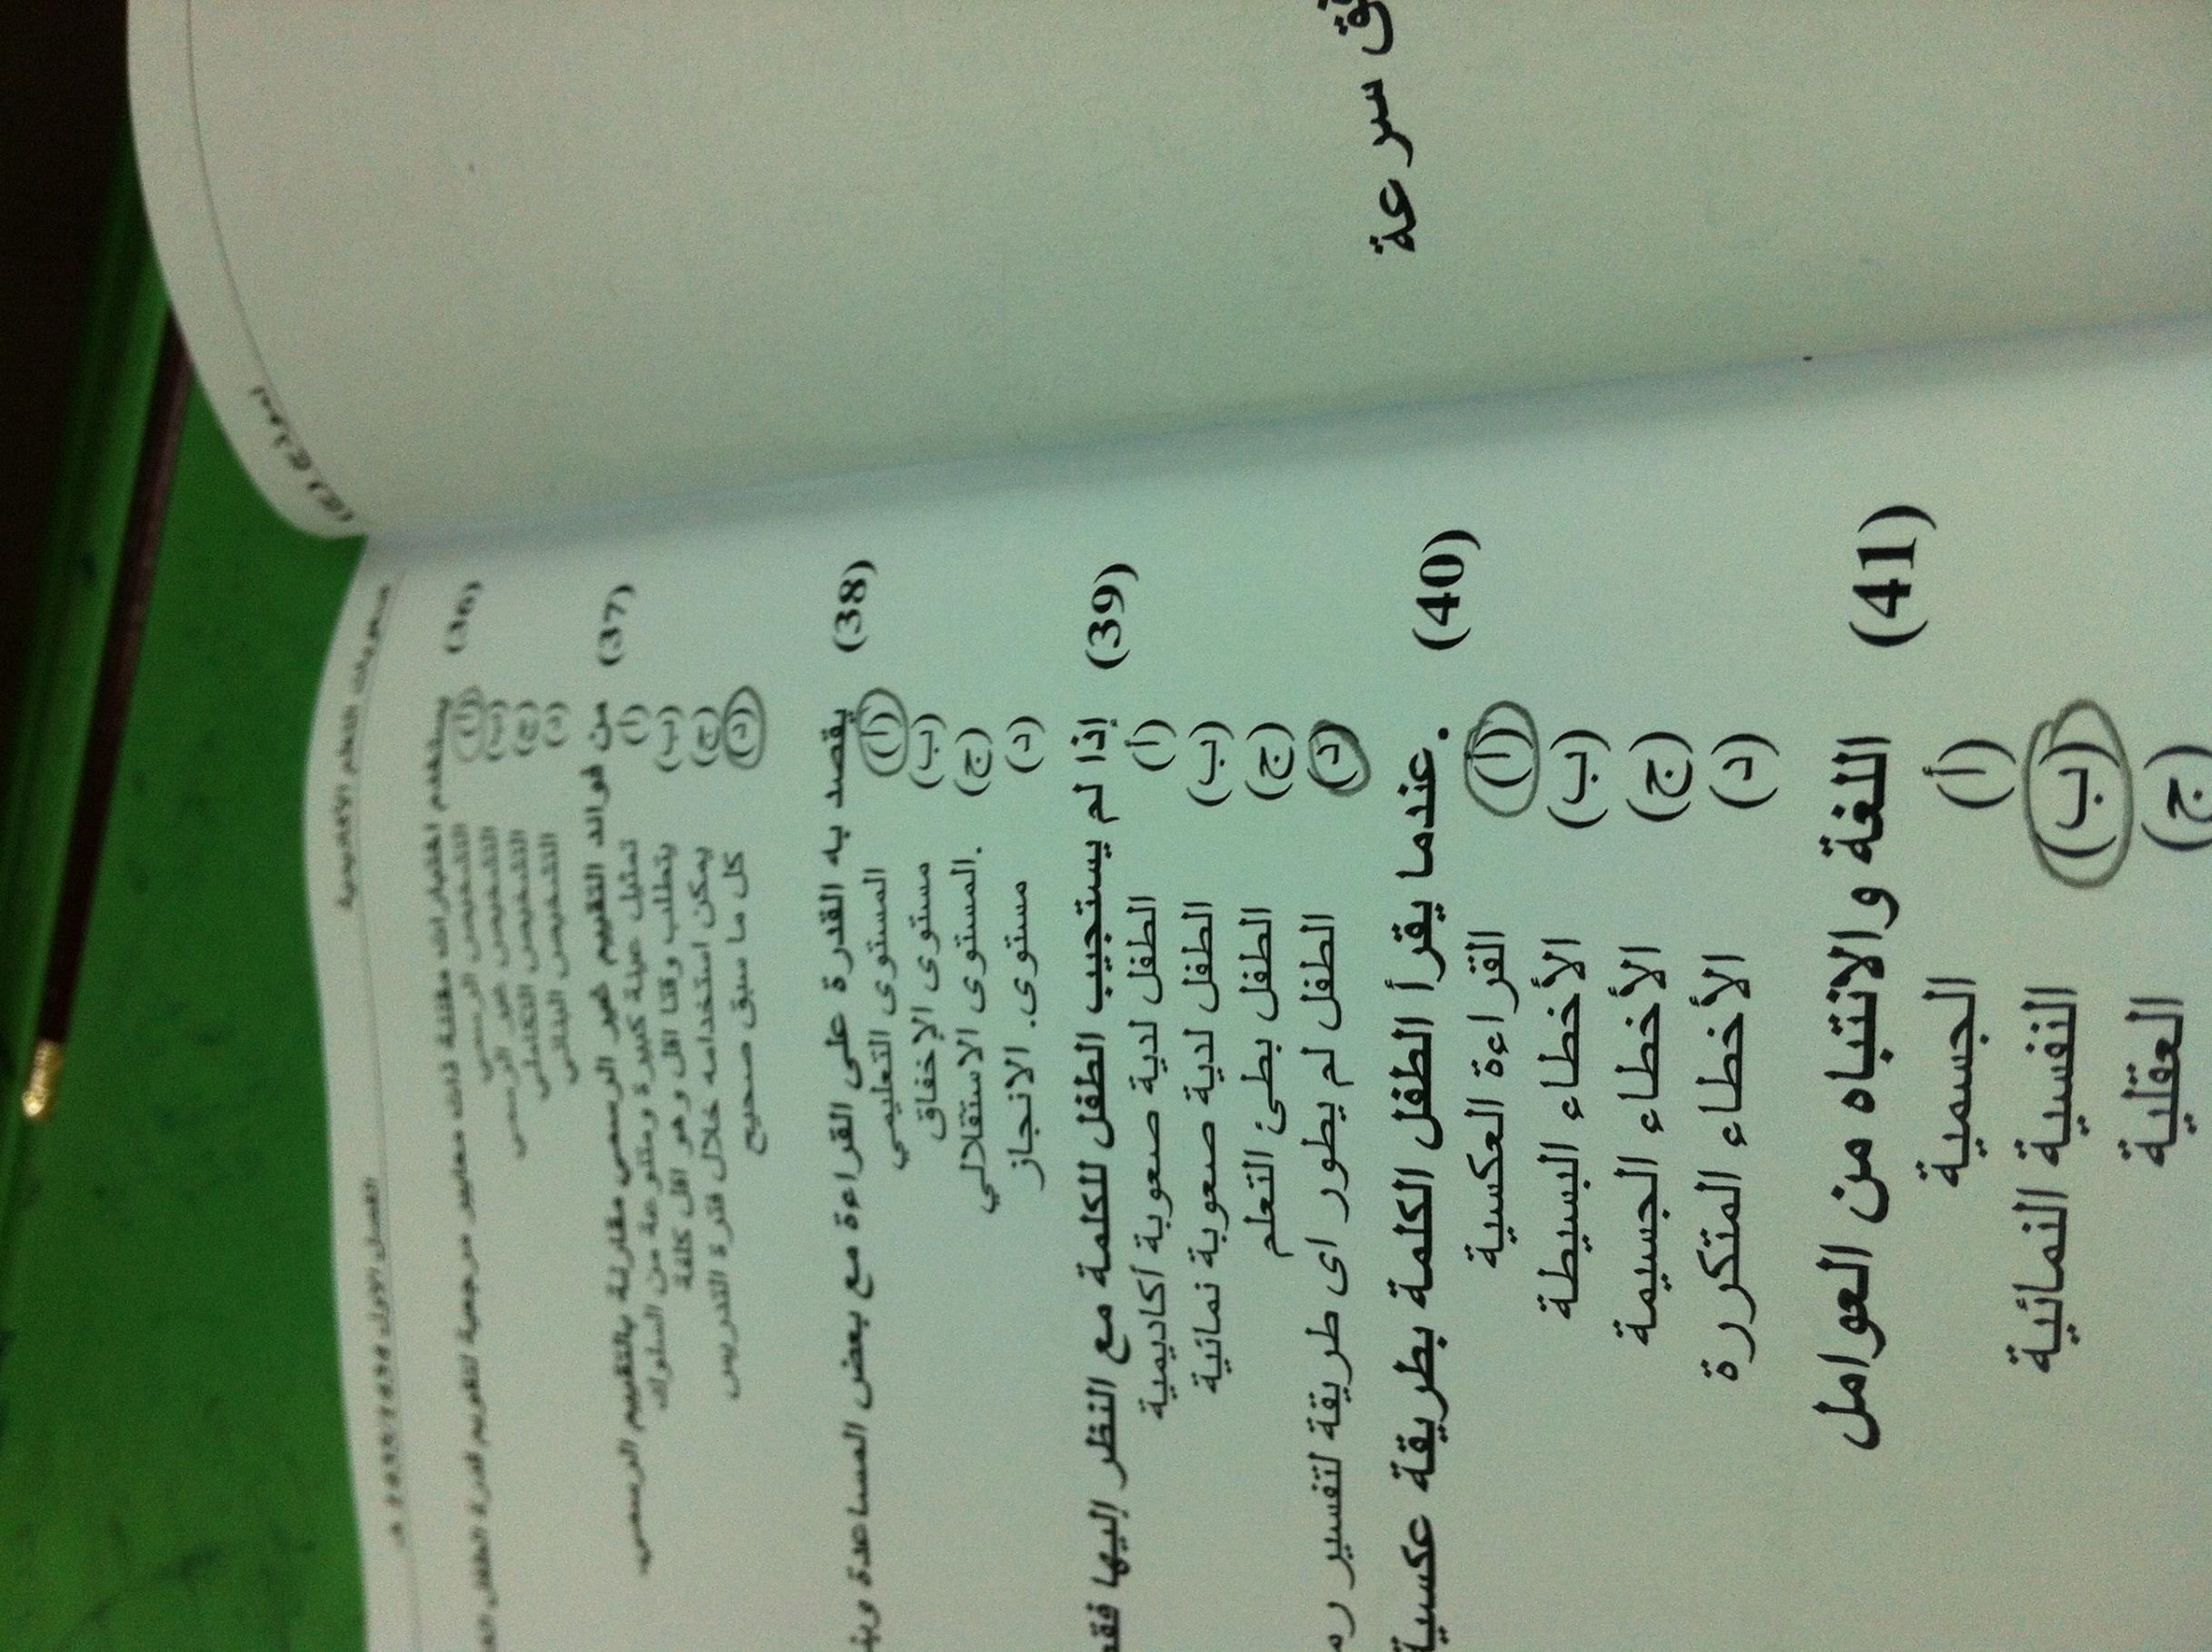 صعوبات التعلم الأكاديمية الفصل الأول
(36) يستخدم اختبارات مقننة ذات معايير مرجعية لتقويم قدرة الطفل
(أ) التشخيص الرسمي
(ب) التشخيص غير الرسمي
(ج) التشخيص التكاملي
(د) التشخيص البنائي
(37) من فوائد التقييم غير الرسمي مقارنة بالتقييم الرسمي
(أ) تمثيل عينة كبيرة ومتنوعة من السلوك
(ب) يتطلب وقتا اقل وهو اقل كلفة
(ج) يمكن استخدامه خلال فترة التدريس
(د) كل ما سبق صحيح
(38) يقصد به القدرة على القراءة مع بعض المساعدة
(أ) المستوى التعليمي
(ب) مستوى الإخفاق
(ج) المستوى الاستقلالي.
(د) مستوى. الانجاز
(39) إذا لم يستجيب الطفل للكلمة مع النظر إليها
(أ) الطفل لدية صعوبة أكاديمية
(ب) الطفل لدية صعوبة نمائية
(ج) الطفل بطئ التعلم
(د) الطفل لم يطور اى طريقة لتفسير
(40) عندما يقرأ الطفل الكلمة بطريقة عكسية
(أ) القراءة العكسية
(ب) الأخطاء البسيطة
(ج) الأخطاء الجسيمة
(د) الأخطاء المتكررة
(41) اللغة والانتباه من العوامل
(أ) الجسمية
(ب) النفسية النمائية
(ج) العقلية
نموذج (B)
سرعة